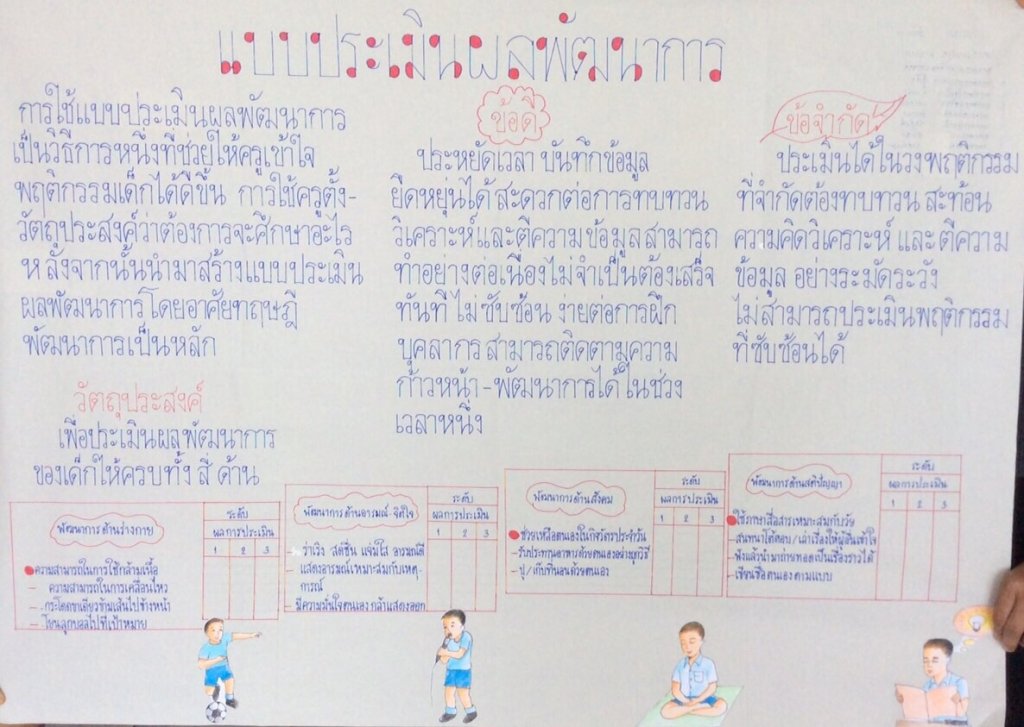 แบบประเมินผลพัฒนาการ
การใช้แบบประเมินผลพัฒนาการ
เป็นวิธีการหนึ่งที่ช่วยให้ครูเข้าใจ
พฤติกรรมเด็กได้ดีขึ้น การใช้ครูตั้ง-
วัตถุประสงค์ว่าต้องการจะศึกษาอะไร
หลังจากนั้นนำมาสร้างแบบประเมิน
ผลพัฒนาการโดยอาศัยทฤษฎี
พัฒนาการเป็นหลัก
วัตถุประสงค์
เพื่อประเมินผลพัฒนาการ
ของเด็กให้ครบทั้ง สี่ ด้าน
ข้อดี
ประหยัดเวลา บันทึกข้อมูล
ยืดหยุ่นได้ สะดวกต่อการทบทวน
วิเคราะห์และตีความข้อมูลสามารถ
ทำอย่างต่อเนื่องไม่จำเป็นต้องเสร็จ
ทันที ไม่ซับซ้อน ง่ายต่อการฝึก
บุคลากร สามารถติดตามความ
ก้าวหน้า - พัฒนาการได้ในช่วง
เวลาหนึ่ง
ข้อจำกัด!
ประเมินได้ในวงพฤติกรรม
ที่จำกัดต้องทบทวน สะท้อน
ความคิดวิเคราะห์ และ ตีความ
ข้อมูล อย่างระมัดระวัง
ไม่สามารถประเมินพฤติกรรม
ที่ซับซ้อนได้
พัฒนาการด้านร่างกาย
ระดับ
ผลการประเมิน
1 2 3
ความสามารถในการใช้กล้ามเนื้อ
- ความสามารถในการเคลื่อนไหว
- กระโดดขาเดียวข้ามเส้นไปข้างหน้า
- โยนลูกบอลไปที่เป้าหมาย
พัฒนาการด้านอารมณ์-จิตใจ
ระดับ
ผลการประเมิน
1 2 3
ร่าเริง สดชื่น แจ่มใส อารมณ์ดี
- แสดงอารมณ์เหมาะสมกับเหตุ-
การณ์
- มีความมั่นใจตนเอง กล้าแสดงออก
พัฒนาการด้านสังคม
ระดับ
ผลการประเมิน
1 2 3
ช่วยเหลือตนเองในกิจวัตรประจำวัน
- รับประทานอาหารด้วยตนเองอย่างถูกวิธี
- ปู/เก็บที่นอนด้วยตนเอง
พัฒนาการด้านสติปัญญา
ระดับ
ผลการประเมิน
1 2 3
ใช้ภาษาสื่อสารเหมาะสมกับวัย
- สนทนาโต้ตอบ/เล่าเรื่องให้ผู้อื่นเข้าใจ
- ฟังแล้วนำมาถ่ายทอดเป็นเรื่องราวได้
- เขียนชื่อตนเอง ตามแบบ